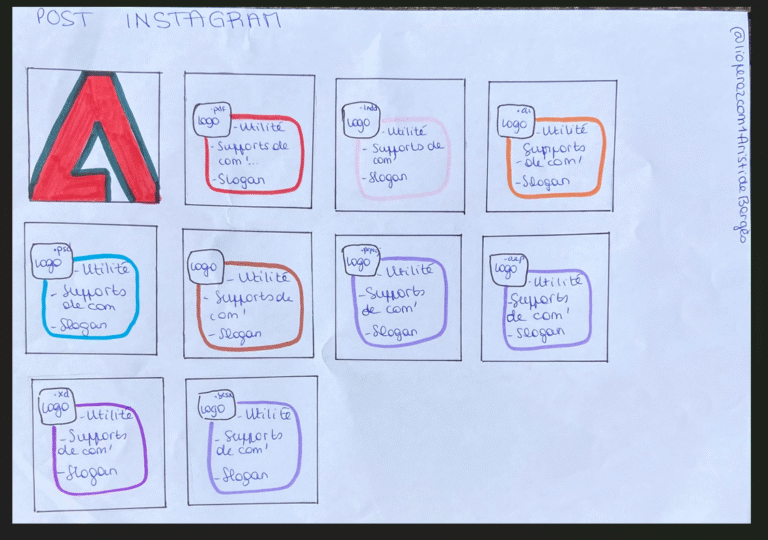 POST INSTAGRAM
.pdf
LOGO
- Utilité
- Supports de
com'...
- Slogan
.indd
LOGO
- Utilité
- Supports de
com'
- Slogan
.ai
LOGO
- Utilité
Supports
- de com'
- Slogan
.psd
LOGO
- Utilité
- Supports
de com
- Slogan
LOGO
- Utilité
- Supports de
com'
- Slogan
LOGO
- Utilité
- Supports
de com'
- Slogan
.aep
LOGO
- Utilité
- Supports
de com'
- Slogan
.xd
LOGO
- Utilité
- Supports
de com'
- Slogan
LOGO
- Utilité
- Supports
de com'
- Slogan